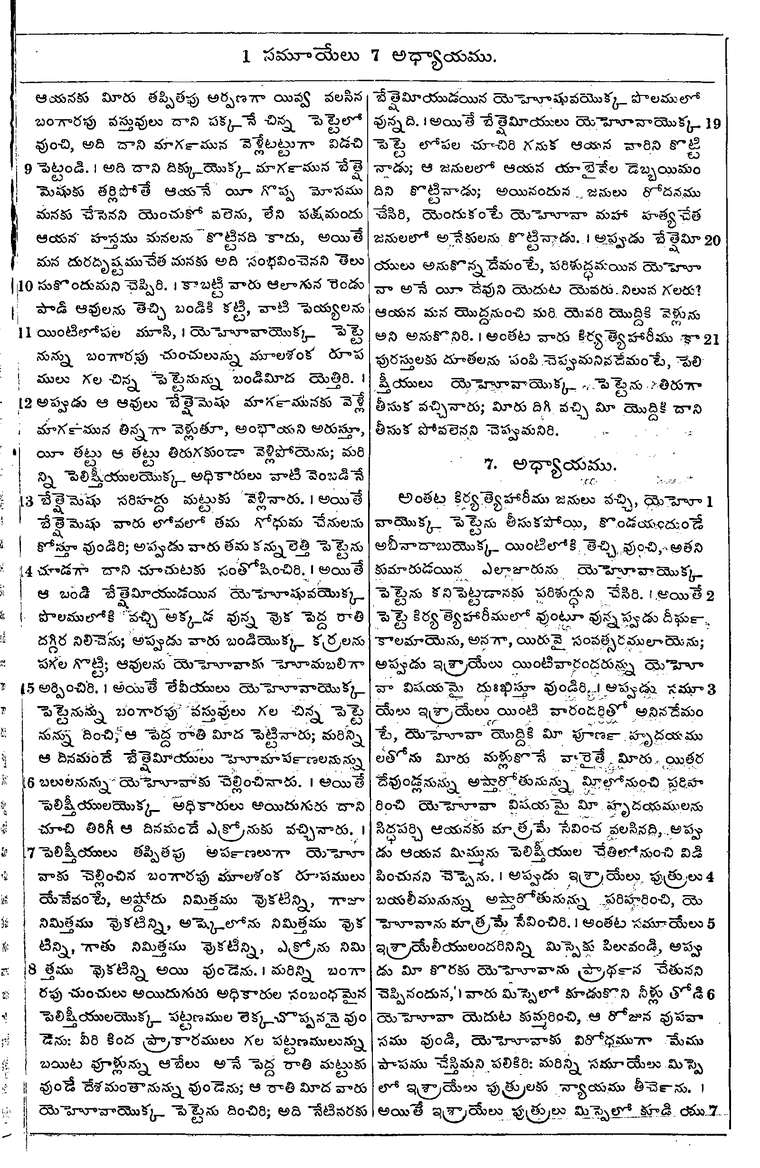 1 సమూయేలు 7 అధ్యాయము.
ఆయనకు మీరు తప్పితపు అర్పణగా యివ్వ వలసిన
బంగారపు వస్తువులు దాని పక్కనే చిన్న పెట్టెలో
వుంచి, అది దాని మార్గమున వెళ్లేటట్టుగా విడచి
9 పెట్టండి. । అది దాని దిక్కుయొక్క మార్గమున బేత్షె
మెషుకు తర్లిపోతే ఆయనే యీ గొప్ప మోసము
మనకు చేసెనని యెంచుకో వలెను, లేని పక్షమందు
ఆయన హస్తము మనలను కొట్టినది కాదు, అయితే
మన దురదృష్టముచేత మనకు అది సంభవించెనని తెలు
10 సుకొందుమని చెప్పిరి. । కాబట్టి వారు ఆలాగున రెండు
పాడి ఆవులను తెచ్చి బండికి కట్టి, వాటి పెయ్యలను
11 యింటిలోపల మూసి, । యెహోవాయొక్క పెట్టె
నున్ను బంగారపు చుంచులున్ను మూలశంక రూప
ములు గల చిన్న పెట్టెనున్ను బండిమీద యెత్తిరి. ।
12 అప్పుడు ఆ ఆవులు బేత్షెమెషు మార్గమునకు వెళ్లే
మార్గమున తిన్నగా వెళ్లుతూ, అంభాయని అరుస్తూ,
యీ తట్టు ఆ తట్టు తిరుగకుండా వెళ్లిపోయెను; మరి
న్ని పెలిష్తీయులయొక్క అధికారులు వాటి వెంబడినే
13 బేత్షెమెషు సరిహద్దు మట్టుకు వెళ్లినారు. । అయితే
బేత్షెమెషు వారు లోవలో తమ గోధుమ చేనులను
కోస్తూ వుండిరి; అప్పుడు వారు తమ కన్ను లెత్తి పెట్టెను
14 చూడగా దాని చూచుటకు సంతోషించిరి. । అయితే
ఆ బండి బేత్షెమీయుడయిన యెహోషువయొక్క
పొలములోకి వచ్చి అక్కడ వున్న వుక పెద్ద రాతి
దగ్గిర నిలిచెను; అప్పుడు వారు బండియొక్క కర్రలను
పగల గొట్టి; ఆవులను యెహోవాకు హోమబలిగా
15 అర్పించిరి. । అయితే లేవీయులు యెహోవాయొక్క
పెట్టెనున్ను బంగారపు వస్తువులు గల చిన్న పెట్టె
నున్ను దించి, ఆ పెద్ద రాతి మీద పెట్టినారు; మరిన్ని
ఆ దినమందే బేత్షెమీయులు హోమార్పణలనున్ను
16 బలులనున్ను యెహోవాకు చెల్లించినారు. । అయితే
పెలిష్తీయులయొక్క అధికారులు అయిదుగురు దాని
చూచి తిరిగీ ఆ దినమందే ఎక్రోనుకు వచ్చినారు. ।
17 పెలిష్తీయులు తప్పితపు అర్పణలుగా యెహో
వాకు చెల్లించిన బంగారపు మూలశంక రూపములు
యేవేవంటే, అష్డోదు నిమిత్తము వుకటిన్ని, గాజా
నిమిత్తము వుకటిన్ని, అష్కెలోను నిమిత్తము వుక
టిన్ని, గాతు నిమిత్తము వుకటిన్ని, ఎక్రోను నిమి
18 త్తము వుకటిన్ని అయి వుండెను. । మరిన్ని బంగా
రపు చుంచులు అయిదుగురు అధికారుల సంబంధమైన
పెలిష్తీయులయొక్క పట్టణముల లెక్క చొప్పననై వుం
డెను: వీరి కింద ప్రాకారములు గల పట్టణములున్ను
బయిట వూళ్లున్ను ఆబేలు అనే పెద్ద రాతి మట్టుకు
వుండే దేశమంతానున్ను వుండెను; ఆ రాతి మీద వారు
యెహోవాయొక్క పెట్టెను దించిరి; అది నేటివరకు
బేత్షెమీయుడయిన యెహోషువయొక్క పొలములో
వున్నది. । అయితే బేత్షెమీయులు యెహోవాయొక్క 19
పెట్టె లోపల చూచిరి గనుక ఆయన వారిని కొట్టి
నాడు; ఆ జనులలో ఆయన యాభైవేల డెబ్బయిమం
దిని కొట్టినాడు; అయినందున జనులు రోదనము
చేసిరి, యెందుకంటే యెహోవా మహా హత్యచేత
జనులలో అనేకులను కొట్టినాడు. । అప్పుడు బేత్షెమీ 20
యులు అనుకొన్నదేమంటే, పరిశుద్ధమయిన యెహో
వా అనే యీ దేవుని యెదుట యెవరు నిలువ గలరు?
ఆయన మన యొద్దనుంచి మరి యెవరి యొద్దికి వెళ్లును
అని అనుకొనిరి. । అంతట వారు కిర్యత్యెహారీము కా 21
పురస్తులకు దూతలను సంపి చెప్పుమనినదేమంటే, పెలి
ష్తీయులు యెహోవాయొక్క పెట్టెను తిరుగా
తీసుక వచ్చినారు; మీరు దిగి వచ్చి మీ యొద్దికి దాని
తీసుక పోవలెనని చెప్పుమనిరి.
7. అధ్యాయము.
అంతట కిర్యత్యెహారీము జనులు వచ్చి, యెహో 1
వాయొక్క పెట్టెను తీసుకపోయి, కొండయందుండే
అబీనాదాబుయొక్క యింటిలోకి తెచ్చి వుంచి, అతని
కుమారుడయిన ఎలాజారును యెహోవాయొక్క
పెట్టెను కనిపెట్టడానకు పరిశుద్ధుని చేసిరి. । అయితే 2
పెట్టె కిర్యత్యెహారీములో వుంటూ వున్నప్పుడు దీర్ఘ
కాలమాయెను, అనగా, యిరువై సంవత్సరములాయెను;
అప్పుడు ఇశ్రాయేలు యింటివారందరున్ను యెహో
వా విషయమై దుఃఖిస్తూ వుండిరి. । అప్పుడు సమూ 3
యేలు ఇశ్రాయేలు యింటి వారందరితో అనినదేమం
టే, యెహోవా యొద్దికి మీ పూర్ణ హృదయము
లతోను మీరు మళ్లుకొనే వారైతే మీరు యితర
దేవుండ్లనున్ను అష్తారోతునున్ను మీలోనుంచి పరిహ
రించి యెహోవా విషయమై మీ హృదయములను
సిద్ధపర్చి ఆయనకు మాత్రమే సేవించ వలసినది, అప్పు
డు ఆయన మిమ్మును పెలిష్తీయుల చేతిలోనుంచి విడి
పించునని చెప్పెను. । అప్పుడు ఇశ్రాయేలు పుత్రులు 4
బయలీమునున్ను అష్తారోతునున్ను పరిహరించి, యె
హోవాను మాత్రమే సేవించిరి. । అంతట సమూయేలు 5
ఇశ్రాయేలీయులందరినిన్ని మిస్పెకు పిలువండి, అప్పు
డు మీ కొరకు యెహోవాను ప్రార్థన చేతునని
చెప్పినందున, । వారు మిస్పెలో కూడుకొని నీళ్లు తోడి 6
యెహోవా యెదుట కుమ్మరించి, ఆ రోజున వుపవా
సము వుండి, యెహోవాకు విరోధముగా మేము
పాపము చేస్తిమని పలికిరి: మరిన్ని సమూయేలు మిస్పె
లో ఇశ్రాయేలు పుత్రులకు న్యాయము తీర్చెను. ।
అయితే ఇశ్రాయేలు పుత్రులు మిస్పెలో కూడి యు 7